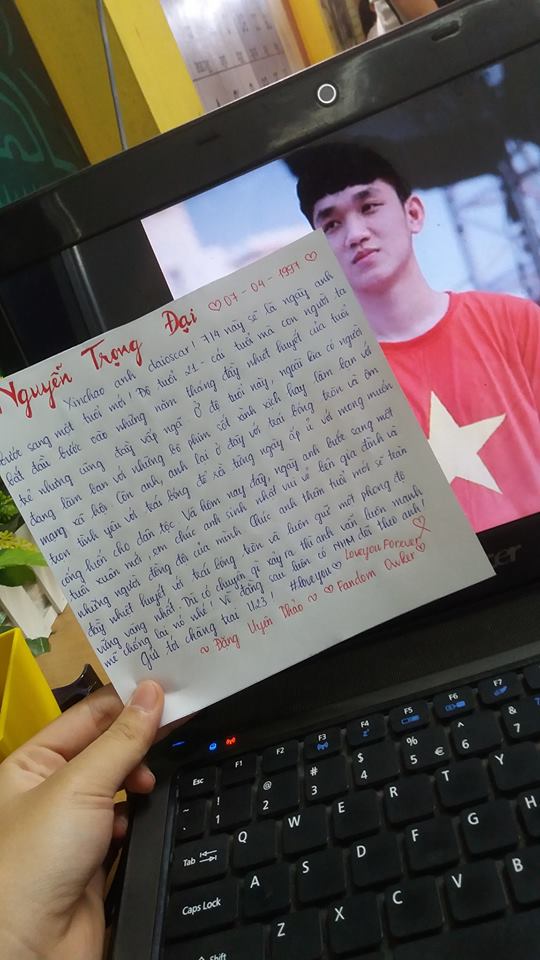 Nguyễn Trọng Đại ♡ 07 - 04 - 1997 ♡
Xinchào anh daioscar! 7/4 này sẽ là ngày anh
bước sang một tuổi mới! Độ tuổi 21 - cái tuổi mà con người ta
bắt đầu bước vào những năm tháng đầy nhiệt huyết của tuổi
trẻ nhưng cũng đầy vấp ngã. Ở độ tuổi này, ngoài kia có người
đang làm bạn với những bộ phim sét xình xịch hay làm bạn với
mạng xã hội. Còn anh, anh lại ở đây với trái bóng tròn và ôm
trọn tình yêu với trái bóng để rồi từng ngày ấp ủ với mong muốn
cống hiến cho dân tộc. Và hôm nay đây, ngày anh bước sang một
tuổi xuân mới, em chúc anh sinh nhật vui vẻ bên gia đình và
những người đồng đội của mình. Chúc anh thêm tuổi mới sẽ tràn
đầy nhiệt huyết với trái bóng tròn và luôn giữ một phong độ
vững vàng nhất. Dù có chuyện gì xảy ra thì anh vẫn luôn mạnh
mẽ chống lại nó nhé! Vì đằng sau luôn có NHM dõi theo anh!
Gửi tới chàng trai U23! #loveyou♡ Loveyou Forever
~ Đặng Uyên Thảo ~ ♡ Fandom Owker♡
acer
Esc F1 F2 F3 F4 F5 F6 F7
~ ` ! 1 @ 2 # 3 $ 4 % 5 € ^ 6 & 7
Tab Q W E R T Y
Caps Lock A S D F G H
Shift Z X C V B